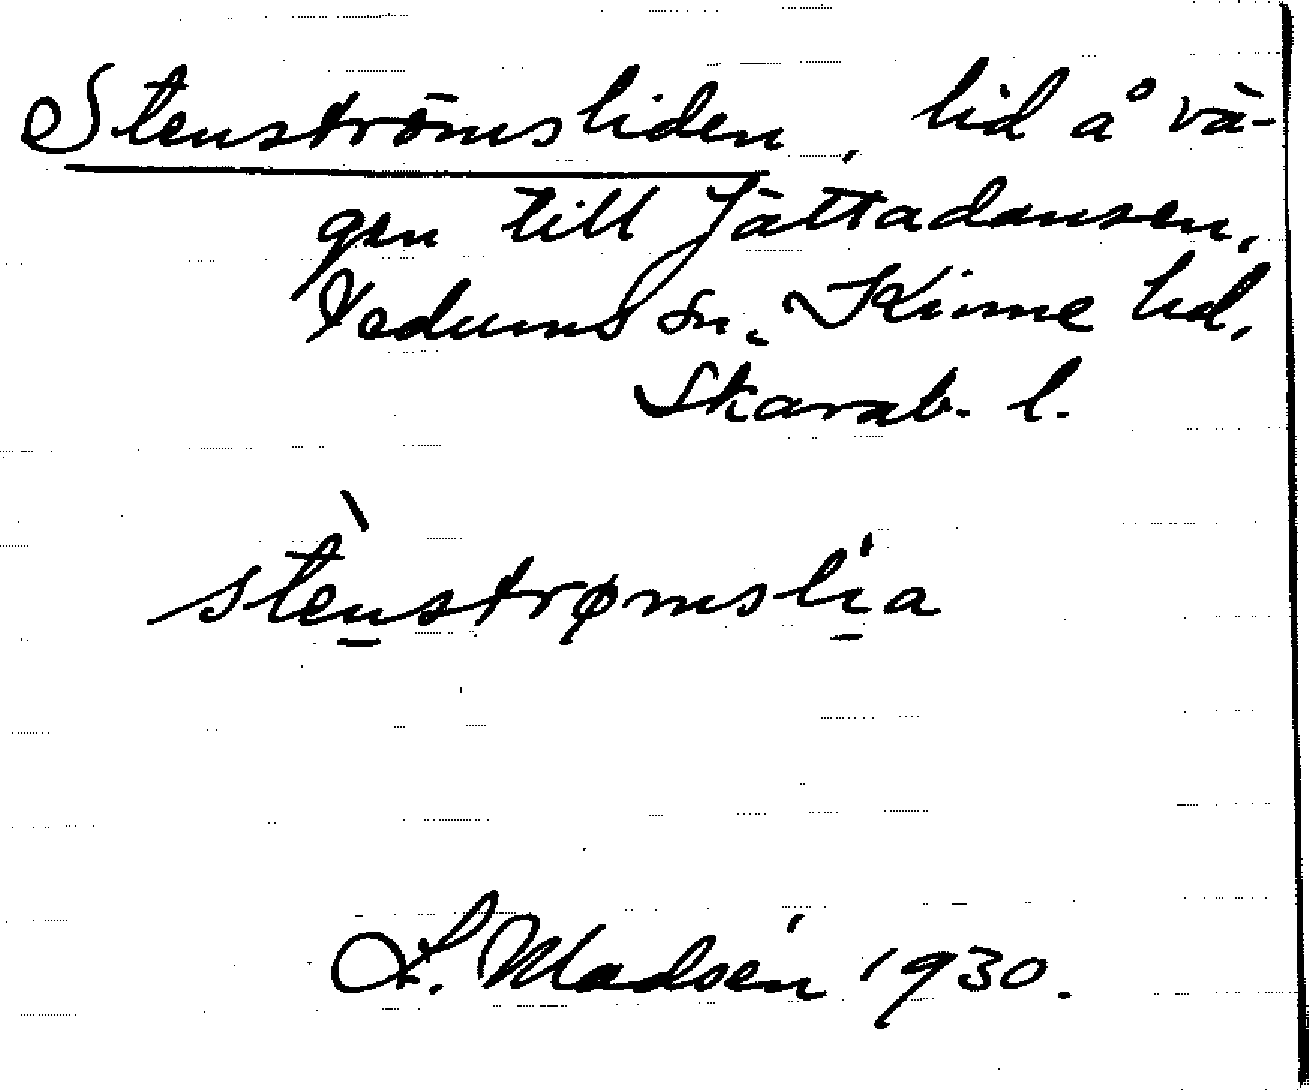 Stenströmsliden, lid å vä-
gen till Jättadansen,
Vedums sn, Kinne hd,
Skarab. l.
ste̱nstrømsli̱a
L. Madsén 1930.